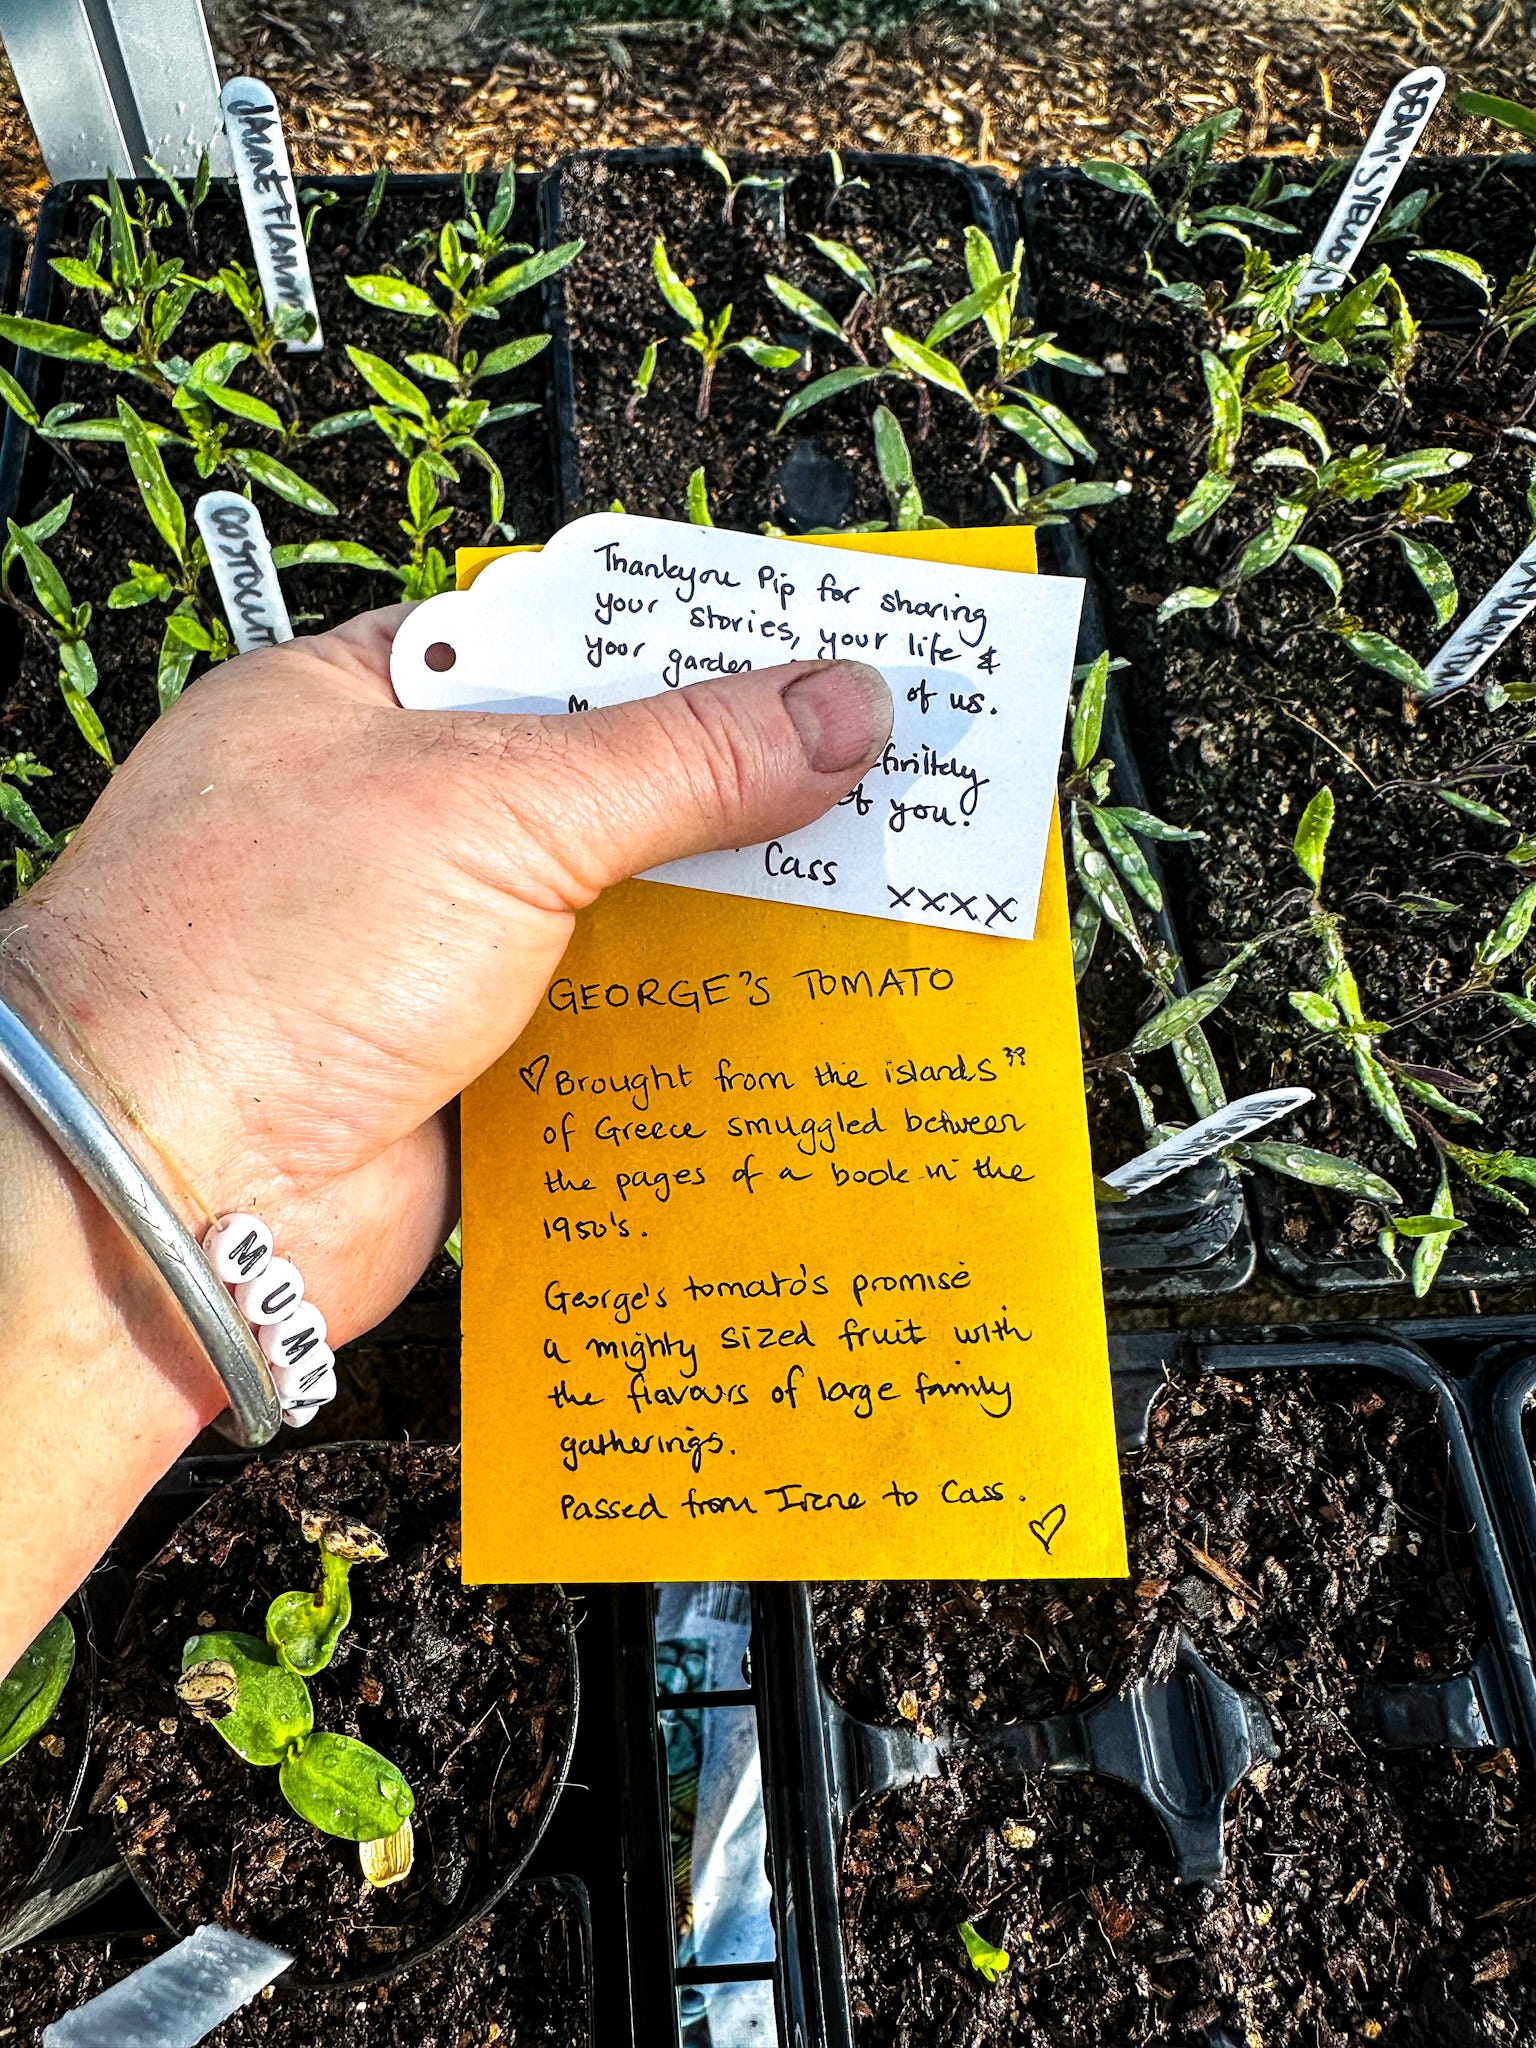 JAUNE FLAMM
BENDY'S YELLOW
COSTOLUT
Thankyou Pip for sharing
your stories, your life &
your garden
of us.
of you.
Cass
xxxx
GEORGE'S TOMATO
♡ Brought from the islands??
of Greece smuggled between
the pages of a book in the
1950's.
George's tomato's promise
a mighty sized fruit with
the flavours of large family
gatherings.
Passed from Irene to Cass. ♡
MUMM